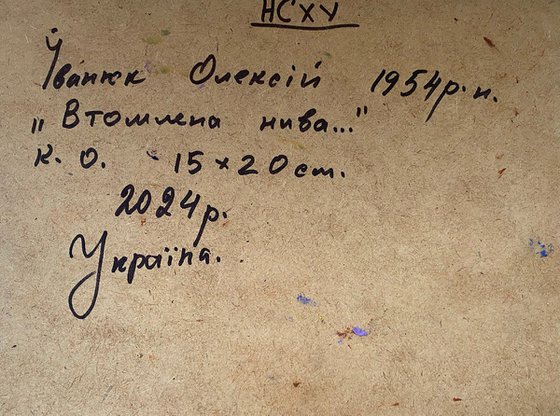 НСХУ
Іванюк Олексій 1954р.н.
„Втомлена нива..."
к. о. 15×20 ст.
2024р.
Україна.